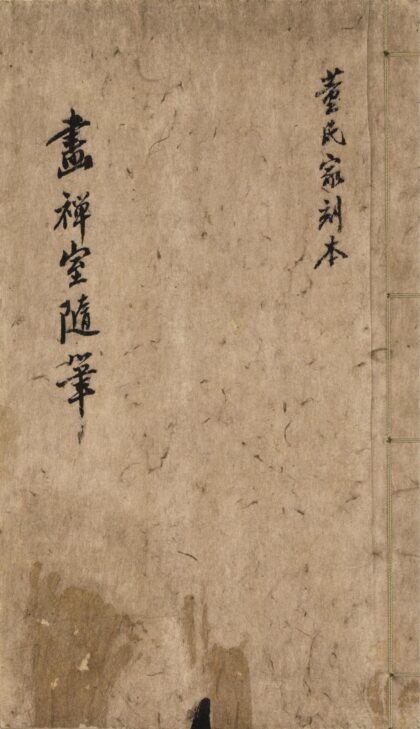 董氏家刻本
畫禅室隨筆